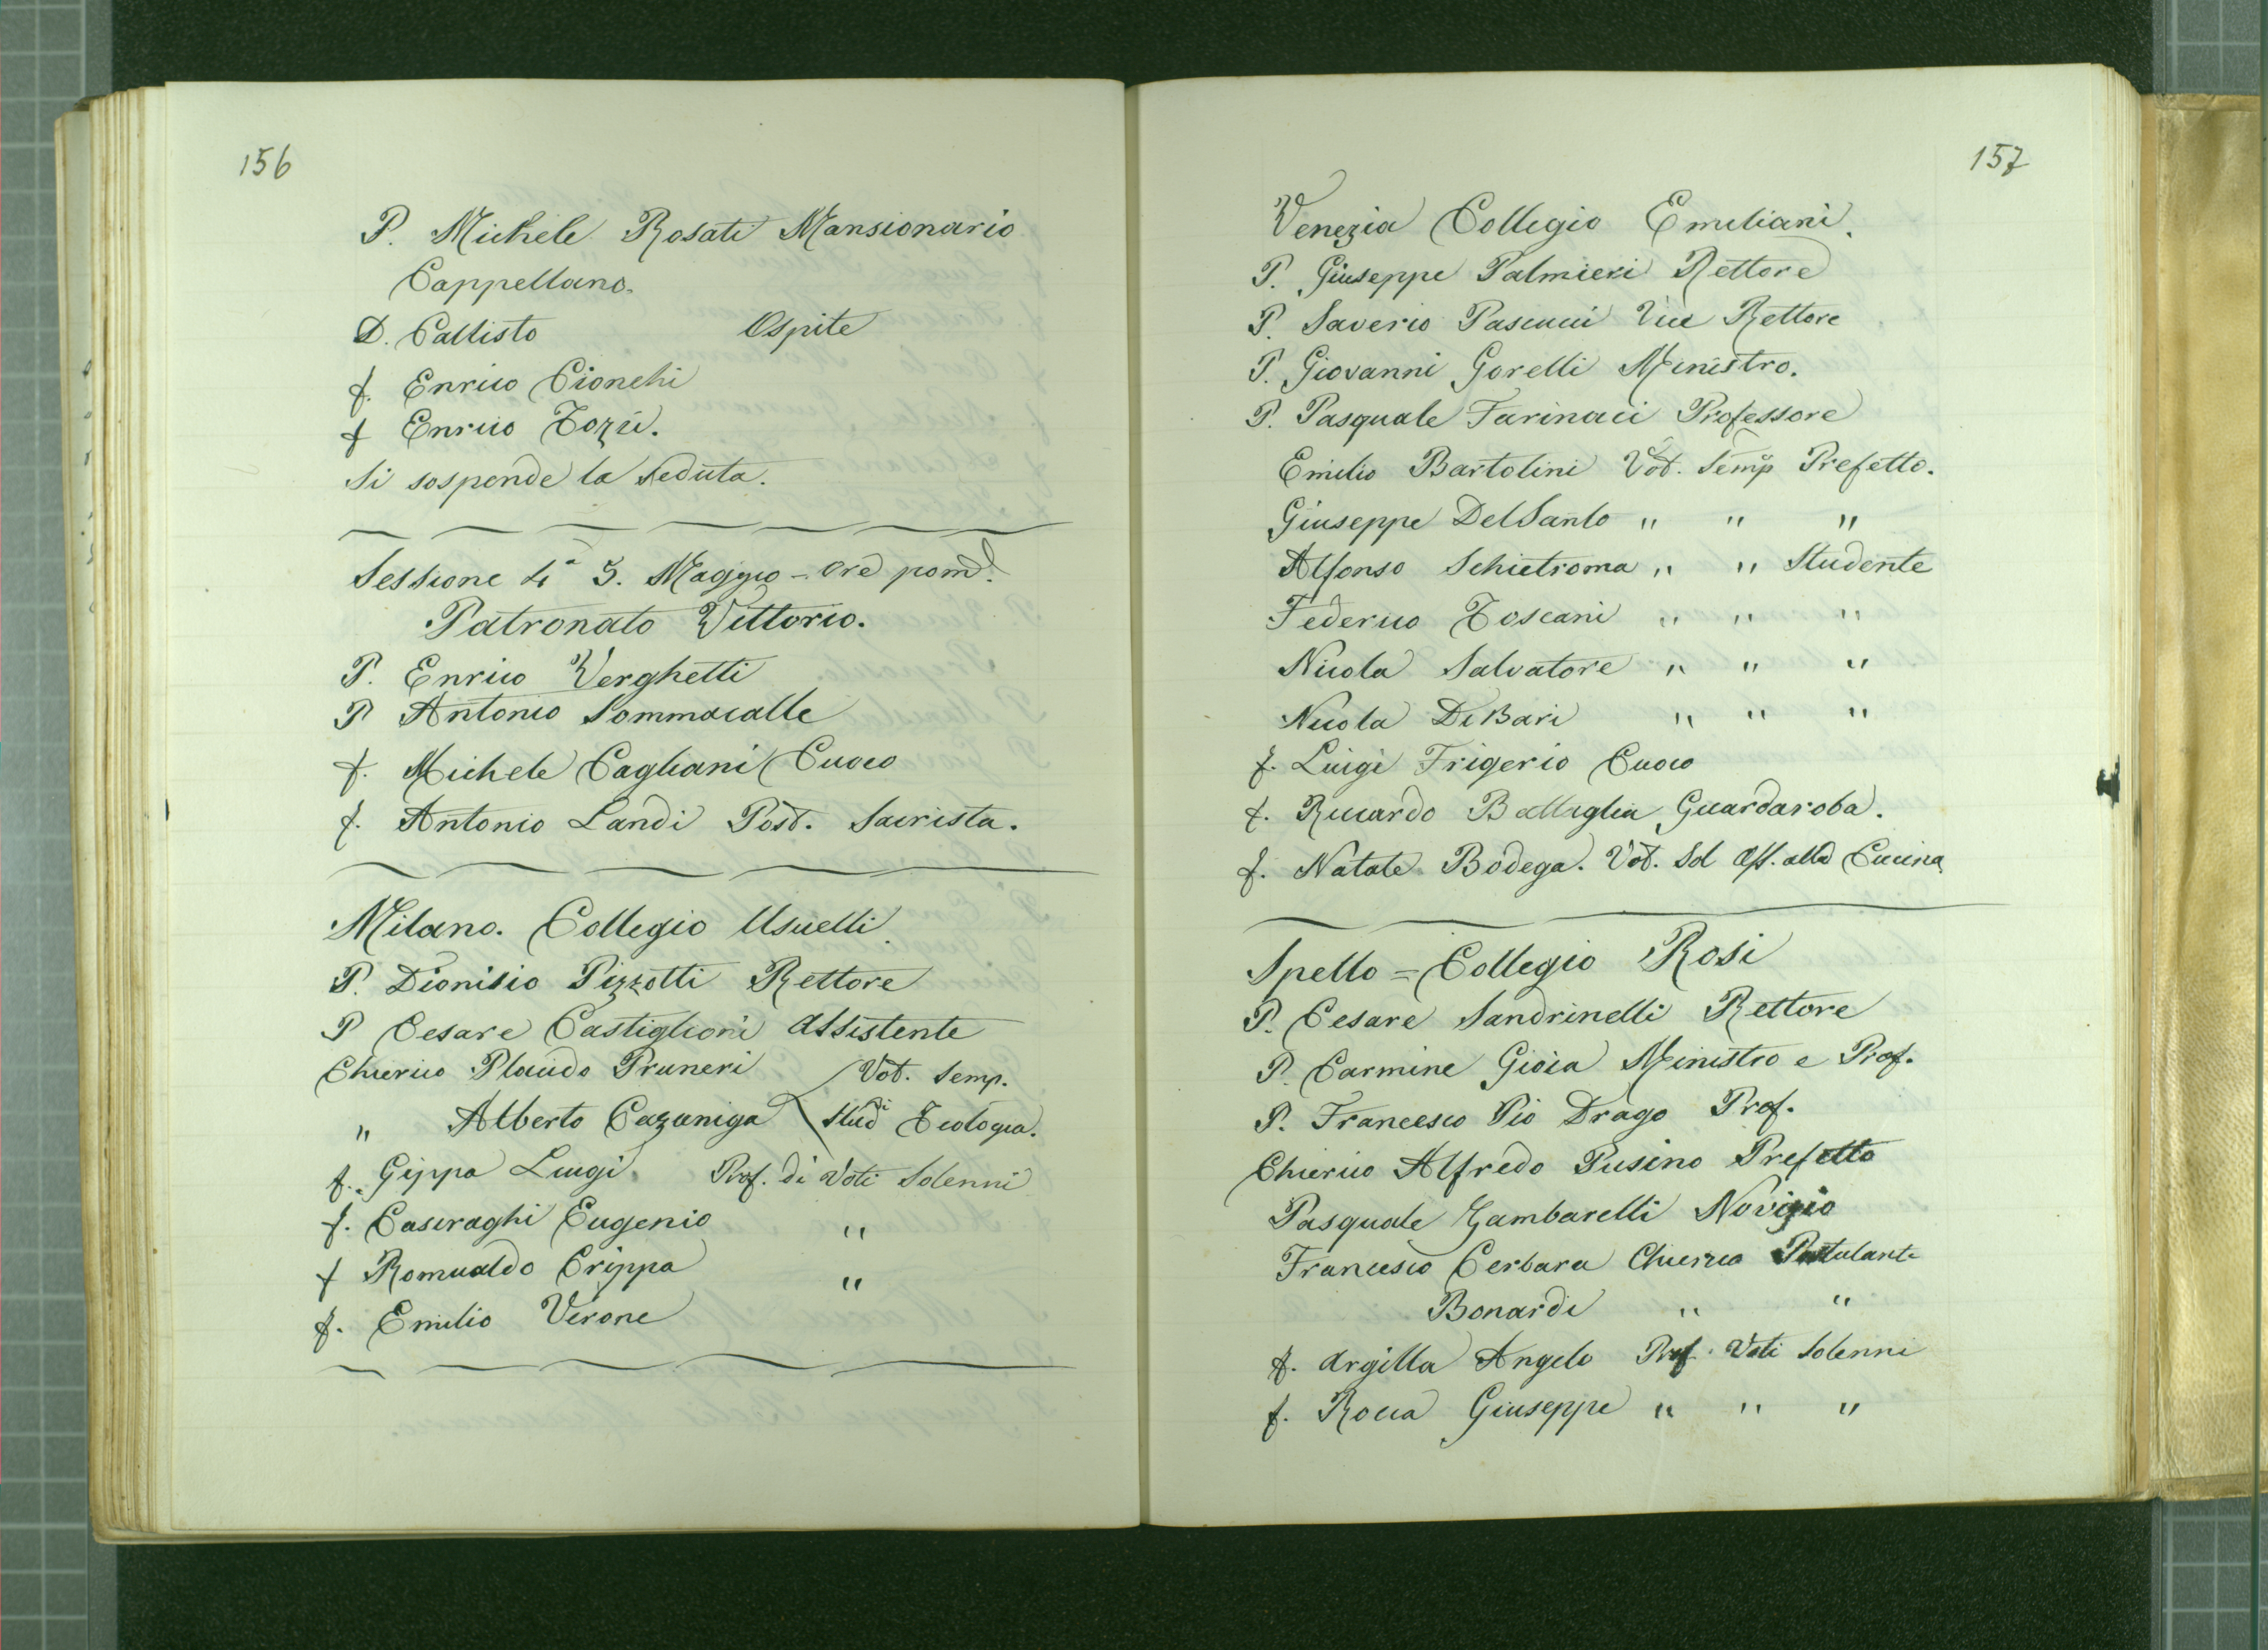 156
P. Michele Rosati Mansionario
Cappellano.
D. Callisto Ospite
f. Enrico Cionchi
f Enrico Tozzi.
Si sospende la seduta.
Sessione 4ª 5. Maggio - Ore pomd.
Patronato Vittorio.
P. Enrico Verghetti
P Antonio Sommacalle
f. Michele Cagliani Cuoco
f. Antonio Landi Post. Sacrista.
Milano. Collegio Usuelli.
P. Dionisio Pizzotti Rettore
P Cesare Castiglioni Assistente
Chierico Placido Pruneri Vot. Semp.
" Alberto Cazaniga Studi Teologia.
f. Gippa Luigi. Prof. di Voti Solenni
f. Casiraghi Eugenio "
f Romualdo Crippa "
f. Emilio Verone
157
Venezia Collegio Emiliani.
P. Giuseppe Palmieri Rettore
P. Saverio Pascucci Vice Rettore
P. Giovanni Gorelli Ministro.
P. Pasquale Farinacci Professore
Emilio Bartolini Vot. Semp Prefetto.
Giuseppe DelSanto " " "
Alfonso Schietroma " " Studente
Federico Toscani " " "
Nicola Salvatore " " "
Nicola DiBari " " "
f. Luigi Frigerio Cuoco
f. Riccardo Battaglia Guardaroba.
f. Natale Bodega. Vot. Sol Aff. alla Cucina
Spello = Collegio Rosi
P. Cesare Sandrinelli Rettore
P. Carmine Gioia Ministro e Prof.
P. Francesco Pio Drago Prof.
Chierico Alfredo Pusino Prefetto
Pasquale Gambarelli Novizio
Francesco Cerbara Chierico Postulante
Bonardi " "
f. Argilla Angelo Prof. Voti Solenni
f. Rocca Giuseppe " " "